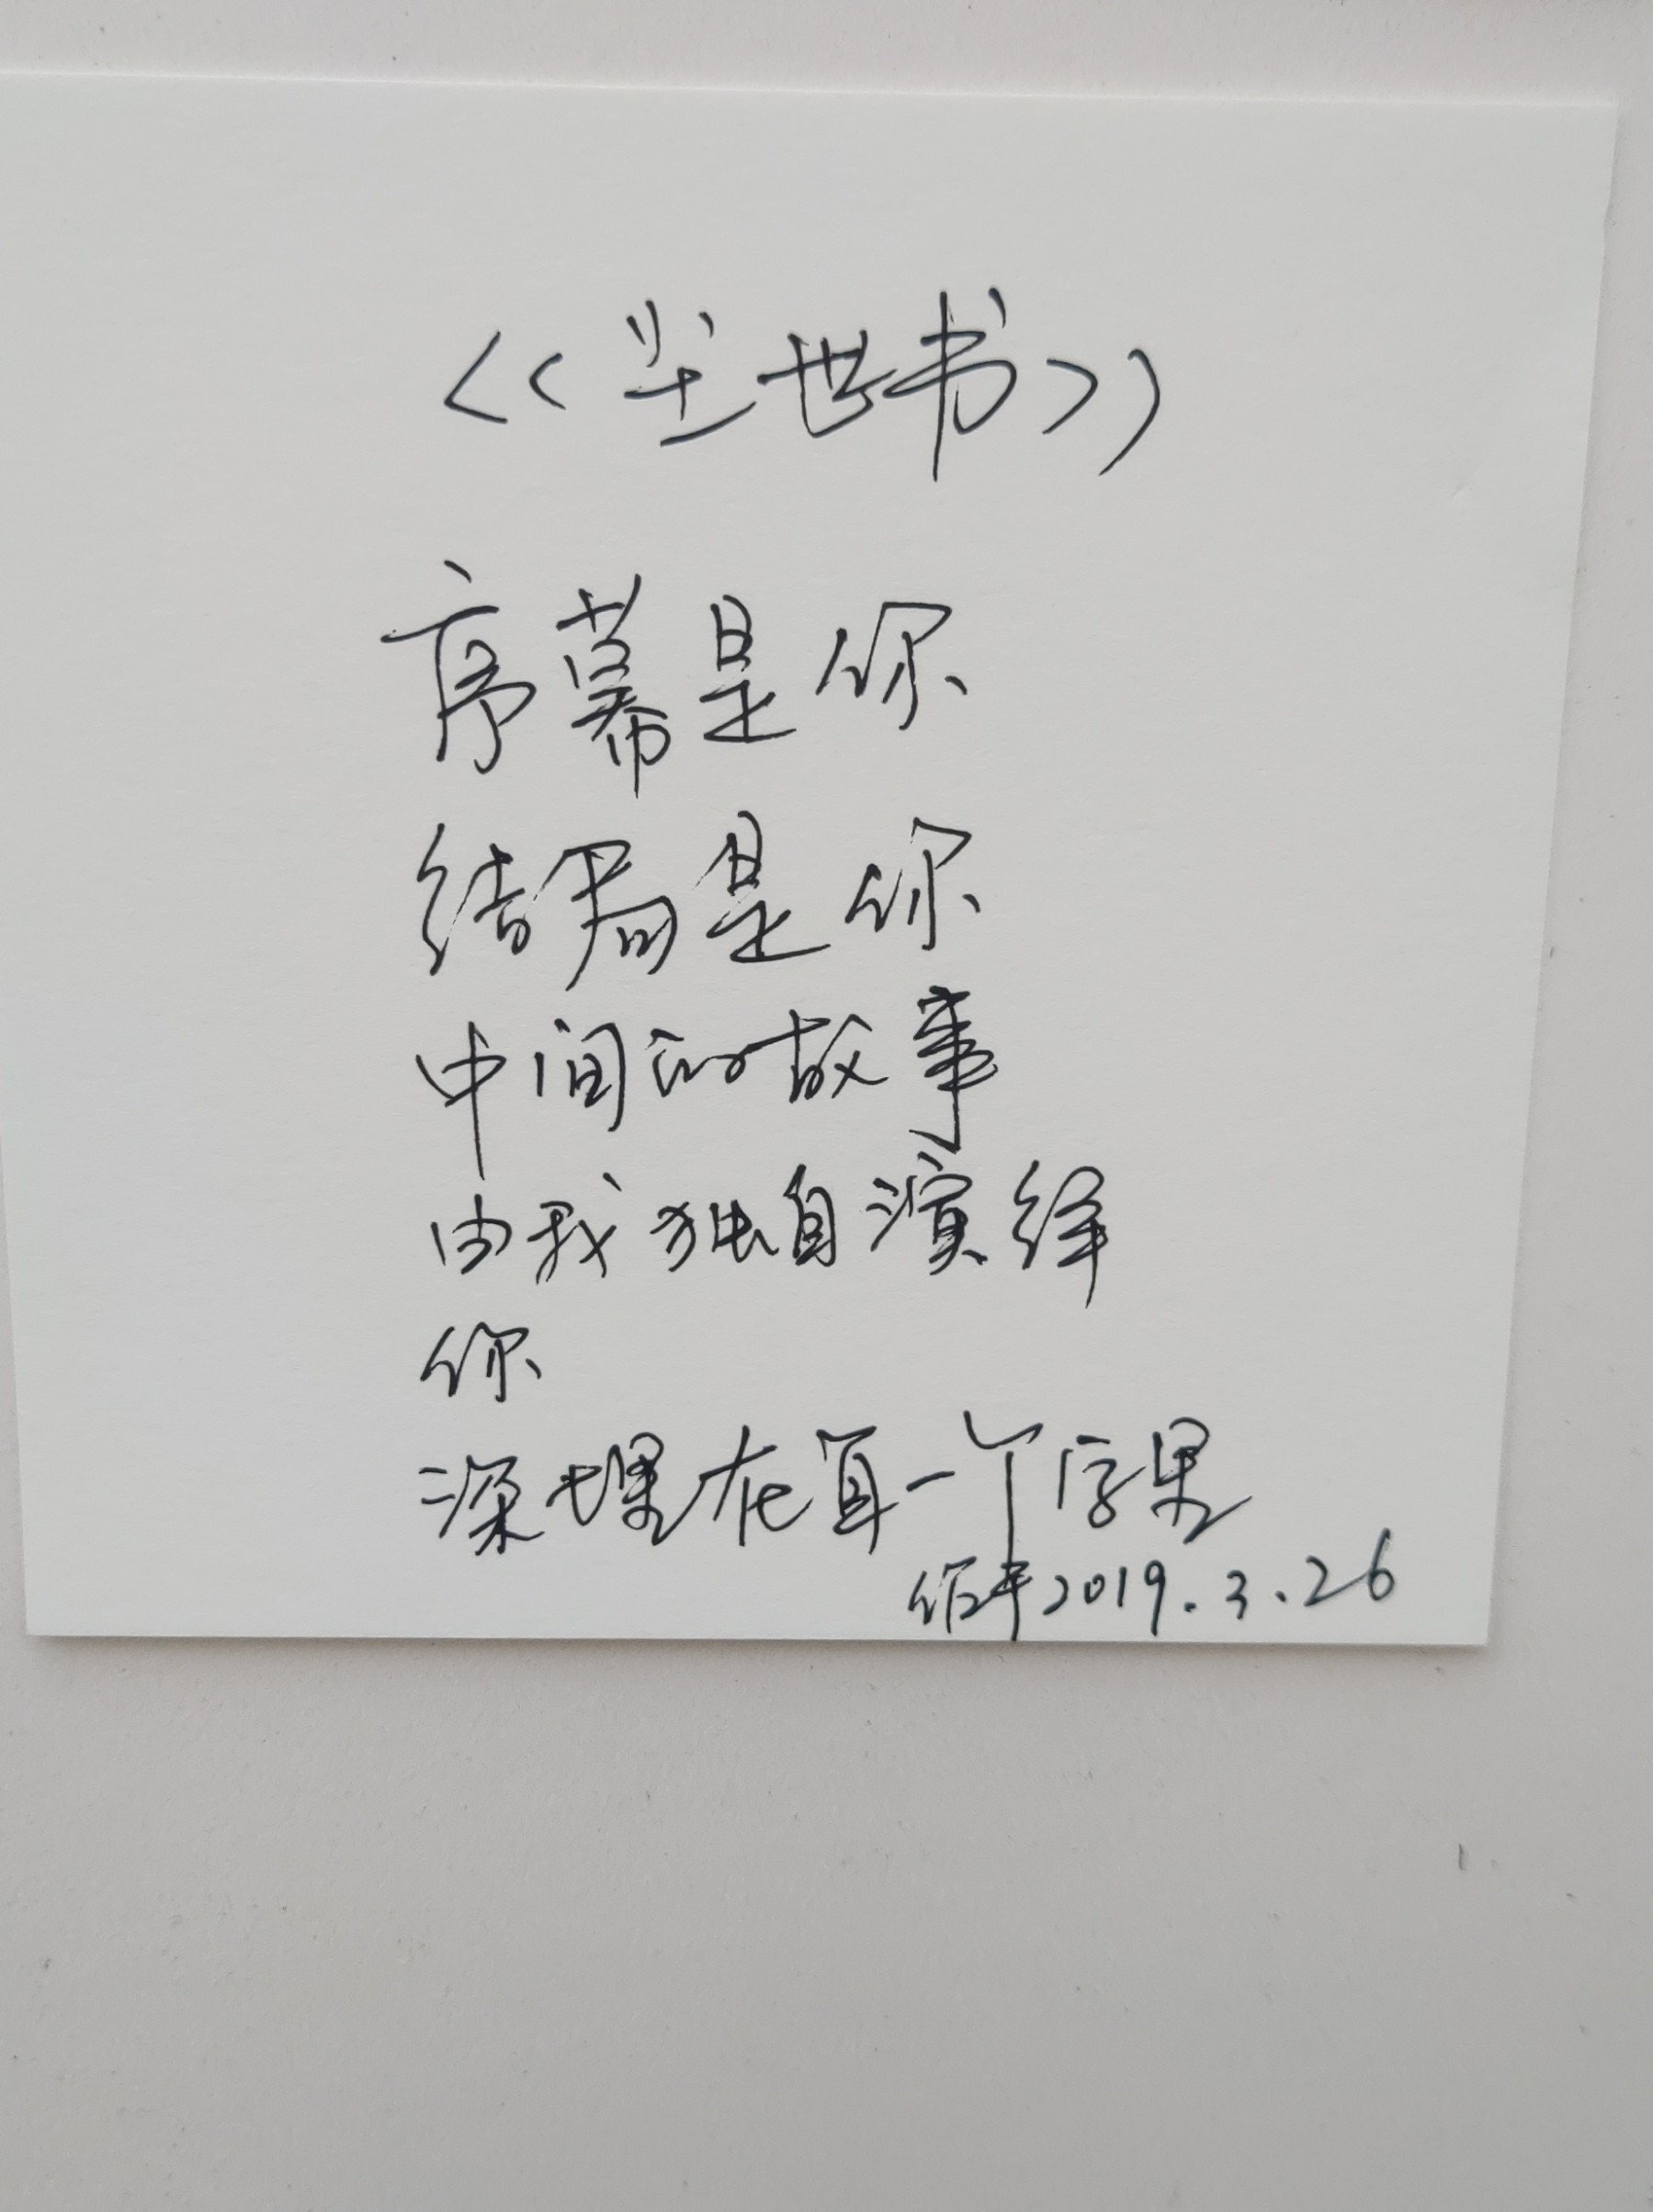 <<尘世书>>
序幕是你
结局是你
中间的故事
由我独自演绎
你
深埋在每一个字里
2019.3.26